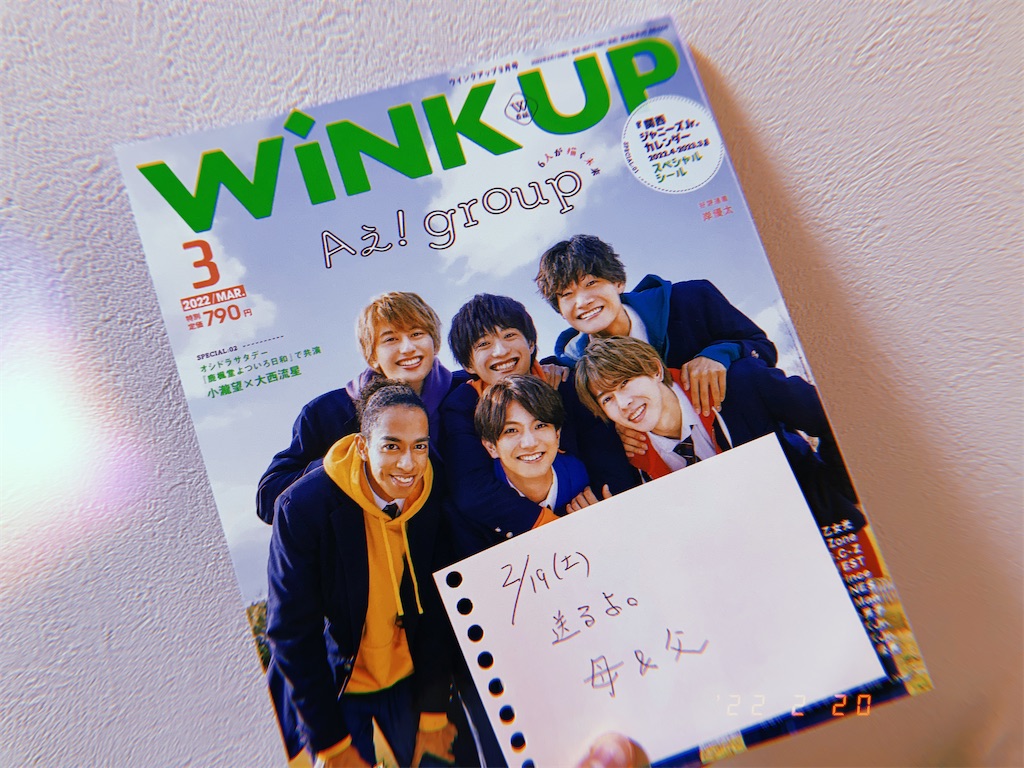 ウインクアップ3月号
WiNK UP
6人が描く未来
Aぇ! group
3
2022/MAR.
特別定価790円
SPECIAL.01
関西
ジャニーズJr.
カレンダー
2022.4-2023.3
スペシャル
シール
岸優太
SPECIAL.02
オシドラサタデー
『鹿楓堂よついろ日和』で共演
小瀧望×大西流星
2/19(土)
送るよ。
母&父
'22 2 20